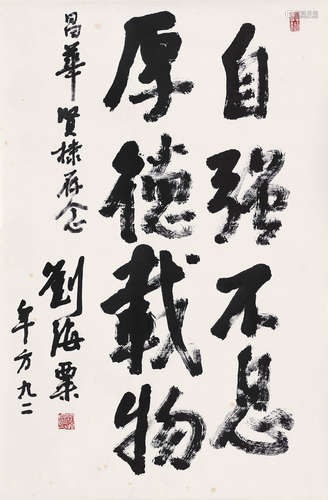 自强不息
厚德载物
昌華賢棣存念
劉海粟
年方九二